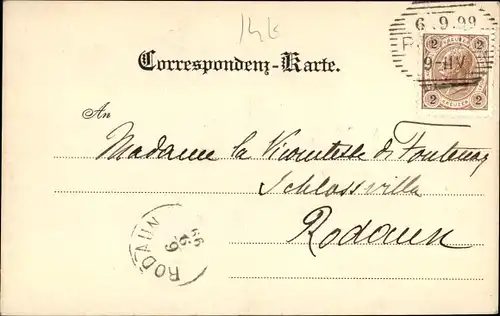 14k
6.9.99
9-11V
2 2
2 KREUZER 2
Correspondenz-Karte.
An
Madame la Vicomtesse de Fontenay
Schlossvilla
Rodaun
RODAUN
6 9